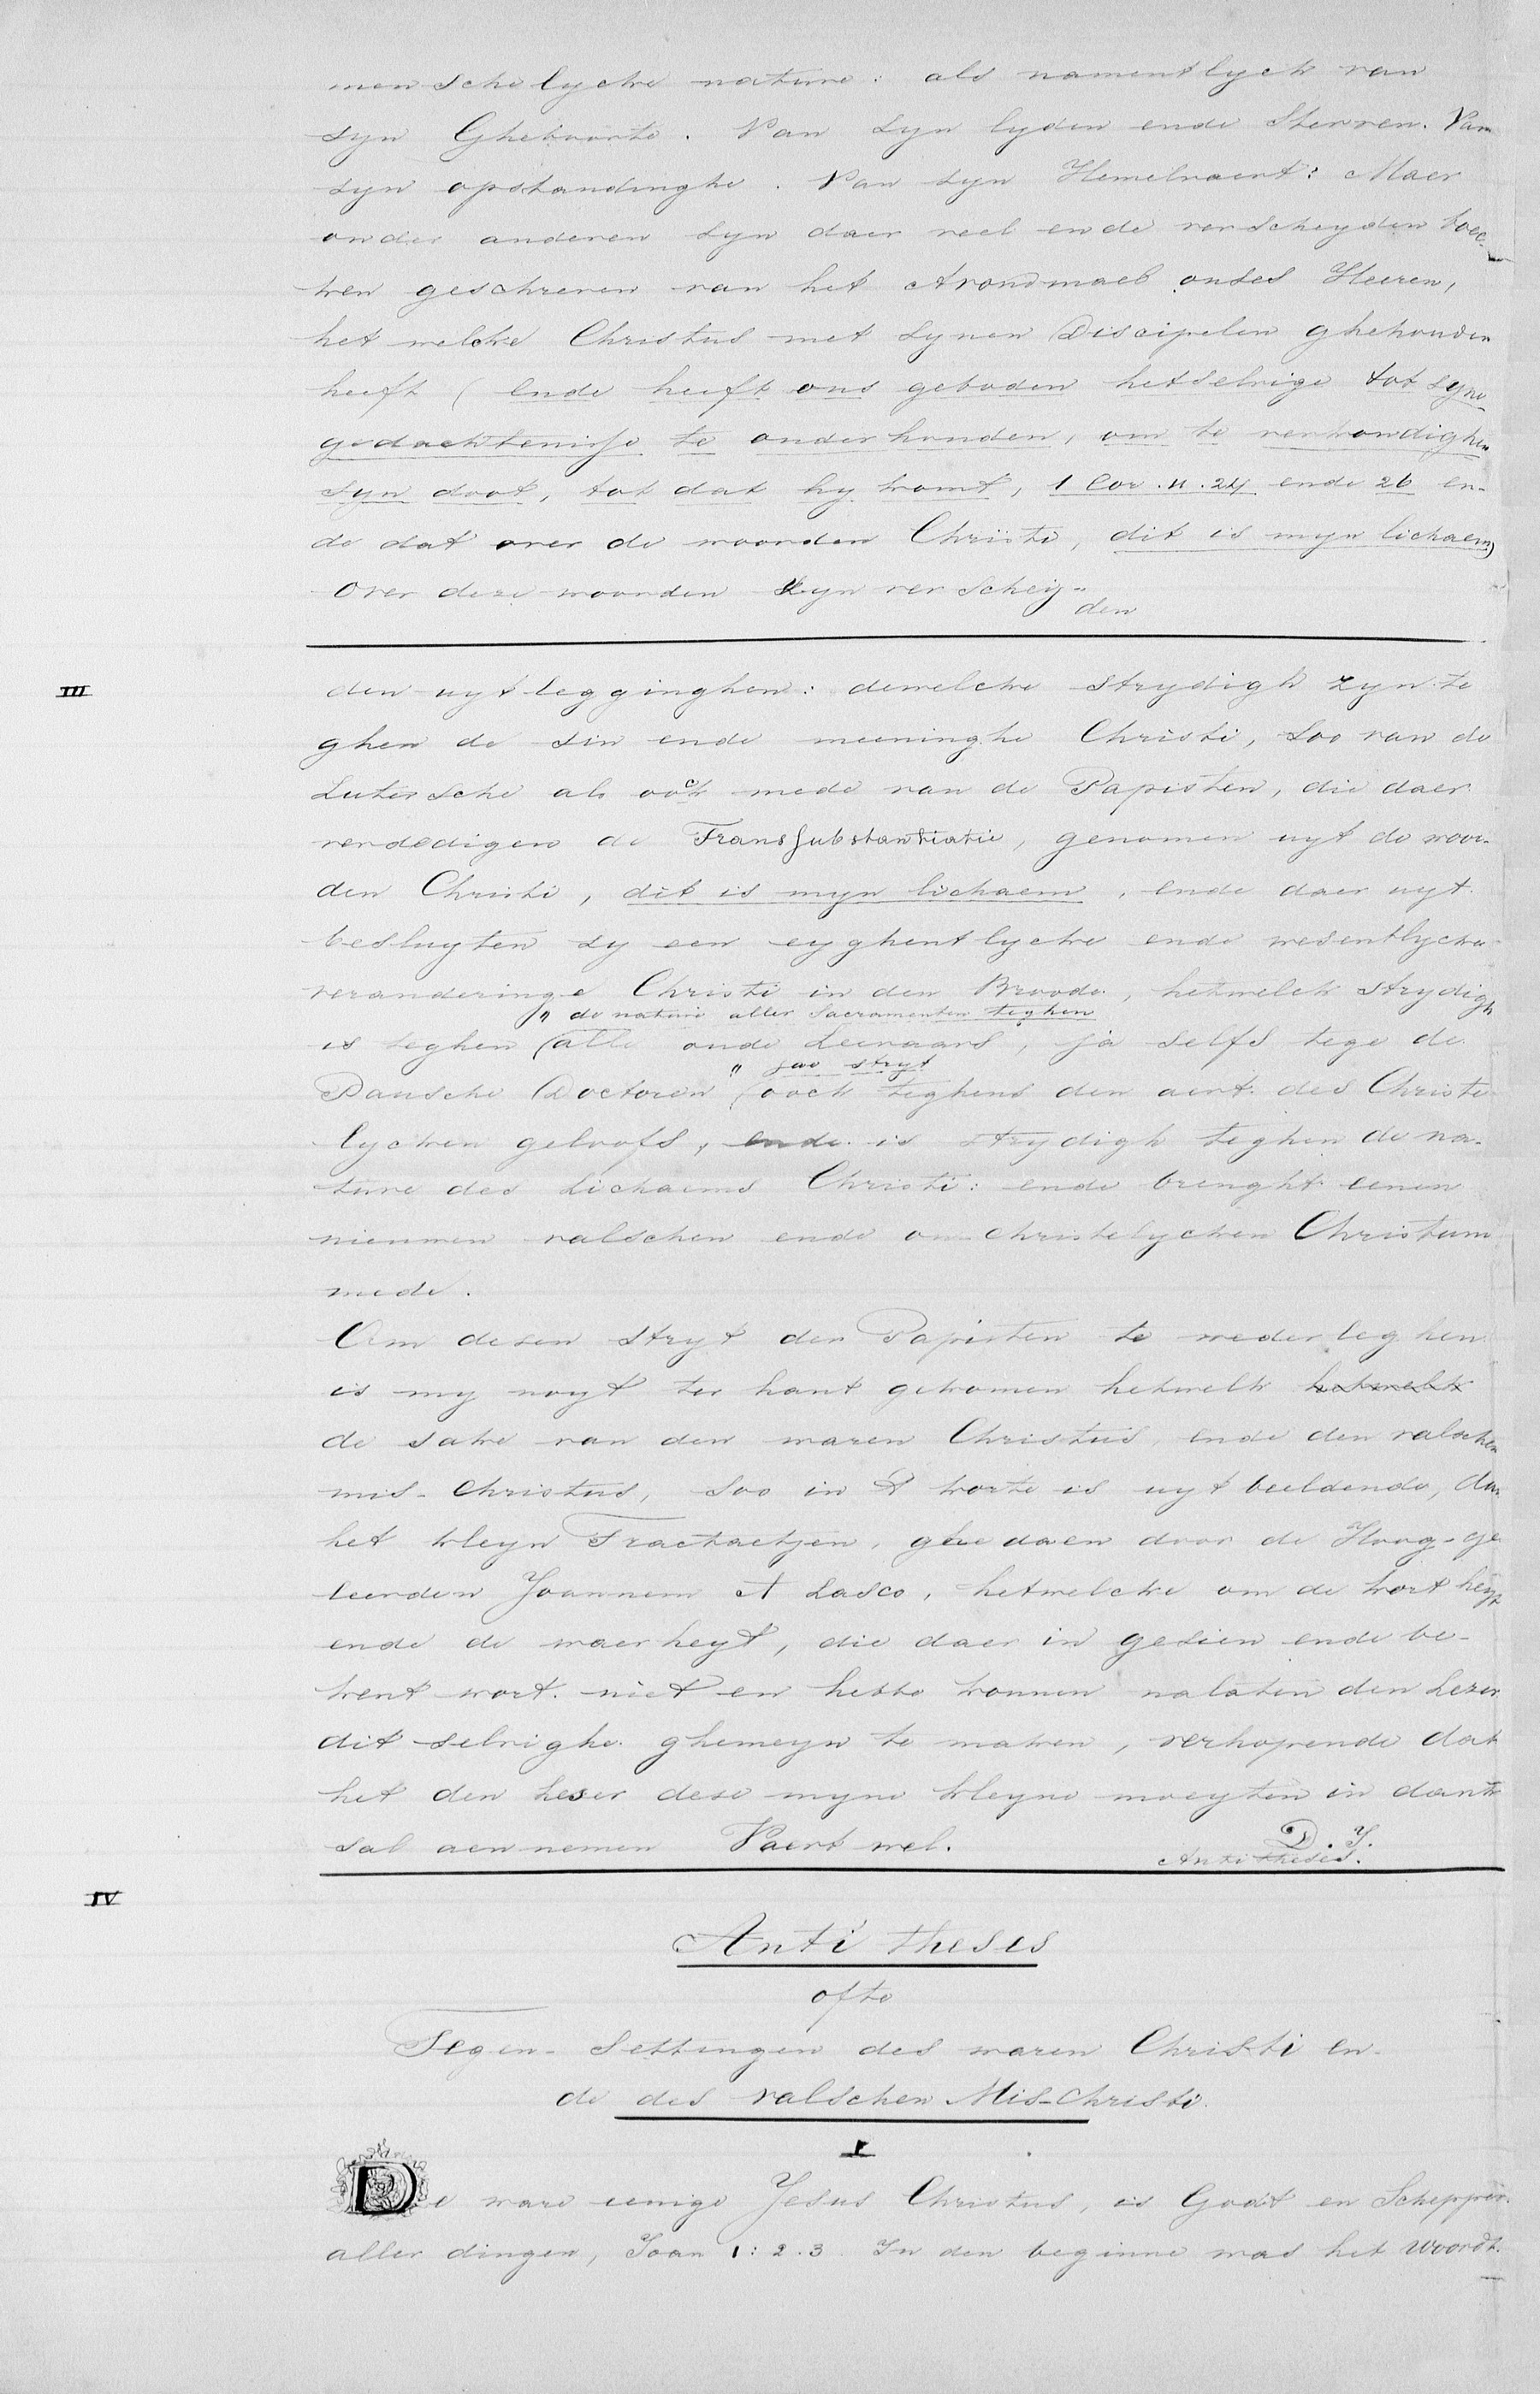 menschelycke nature: als namentlyck van
syn Gheboorte. Van syn lyden ende Sterven. Van
syn opstandinghe. Van syn Hemelvaert: Maer
onder anderen syn daer veel ende verscheyden boec-
ken geschreven van het Avondmael onses Heeren,
het welcke Christus met synen Discipelen ghehouden
heeft (ende heeft ons geboden hetselvige tot syne
gedachtenisse te onderhouden, om te verkondighen
syn doot, tot dat hy komt, 1 Cor. 11. 24 ende 26 en-
de dat over de woorden Christi, dit is myn lichaem)
Over dese woorden syn verschey-
den
III
den uytlegginghen: dewelcke strydigh zyn te
ghen de sin ende meeninghe Christi, soo van de
Lutersche als oock mede van de Papisten, die daer
verdedigen de Transsubstantiatie, genomen uyt de woor-
den Christi, dit is myn lichaem, ende daer uyt
besluyten sy een eyghentlycke ende wesentlycke
veranderinge Christi in den Broode, hetwelck strydigh
" de nature aller Sacramenten teghen
is teghen (alle oude Leeraars, ja selfs tege de
" jae stryt
Pausche Doctoren (oock teghens den aert des Christe
lycken geloofs, ende is strydigh teghen de na-
ture des lichaems Christi: ende brenght eenen
nieuwen valschen ende on-christelycken Christum
mede.
Om desen stryt der Papisten te wederleghen
is my noyt ter hant gekomen hetwelk hetwelk
de sake van den waren Christus, ende den valschen
mis-Christus, soo in 't korte is uytbeeldende, dan
het kleyn Tractaetjen, ghedaen door de Hoog-ge
leerden Joannem A Lasco, hetwelcke om de kortheyt
ende de waerheyt, die daer in gesien ende be-
kent wort. niet en hebbe konnen nalaten den Leser
dit selvighe ghemeyn te maken, verhopende dat
het den leser dese myne kleyne moeyten in dank
sal aennemen Vaert wel. D. J.
Antitheses.
IV
Anti theses
ofte
Tegen-Settingen des waren Christi en-
de des valschen Mis-Christi.
I
De ware eenige Jesus Christus is Godt en Schepper
aller dingen, Joan 1: 2. 3. In den beginne was het Woordt.